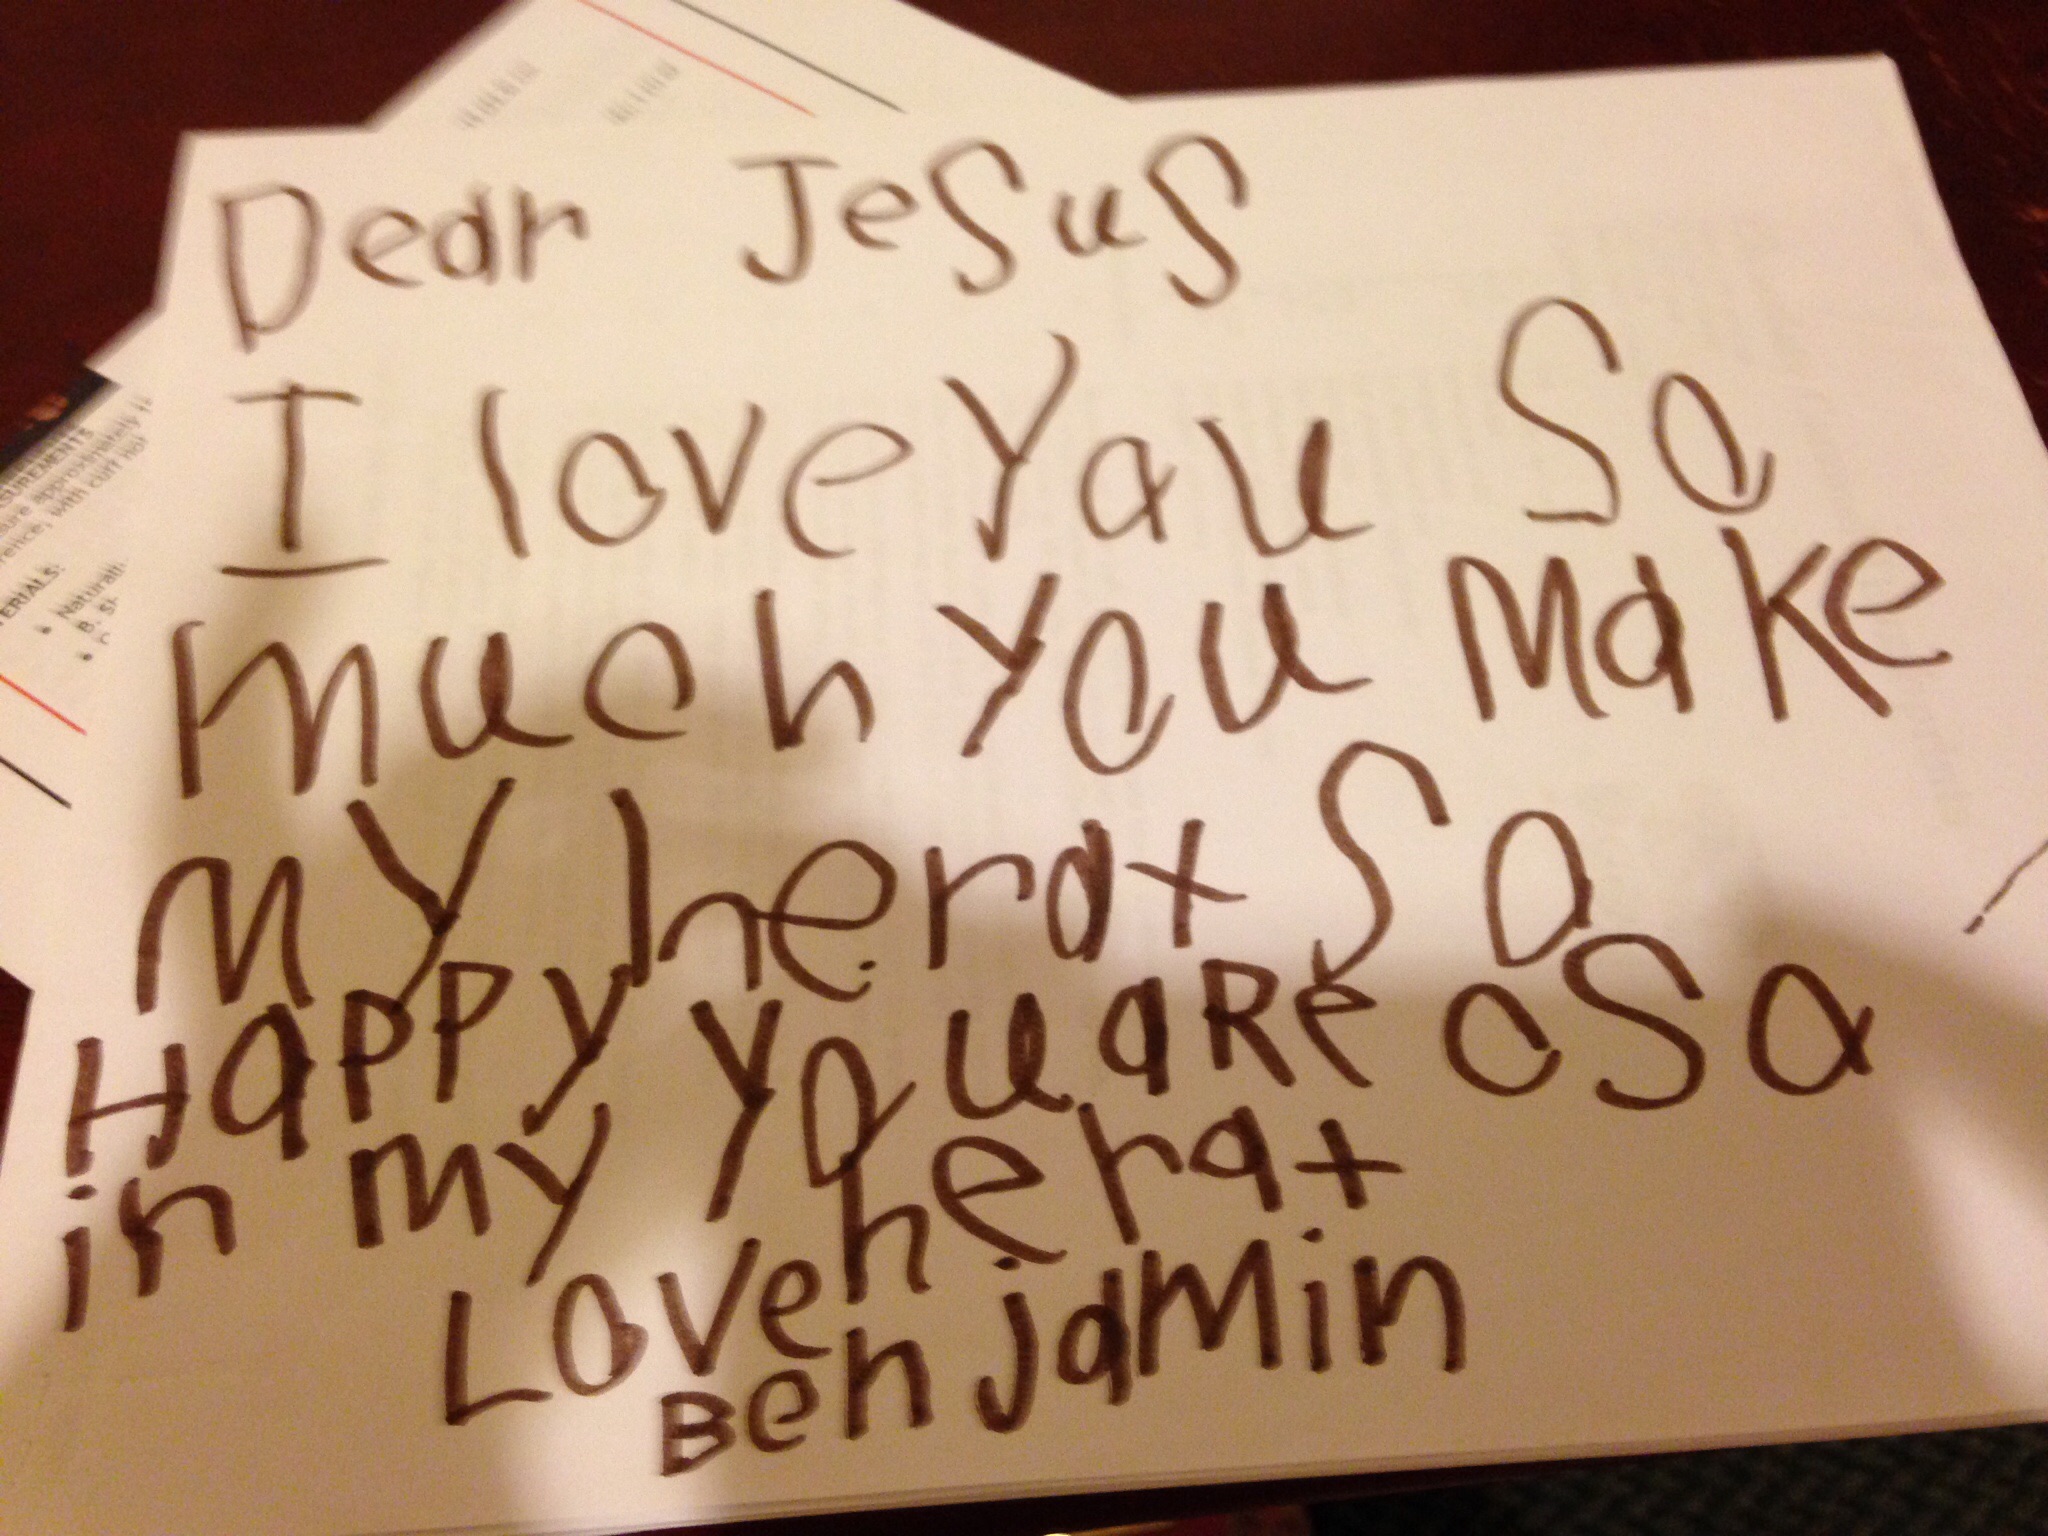 Dear Jesus
I love you so
much you make
my herat so
Happy you aRe osa
in my herat
Love
Benjamin
SUREMENTS
approximately
with cuff
ERIALS: